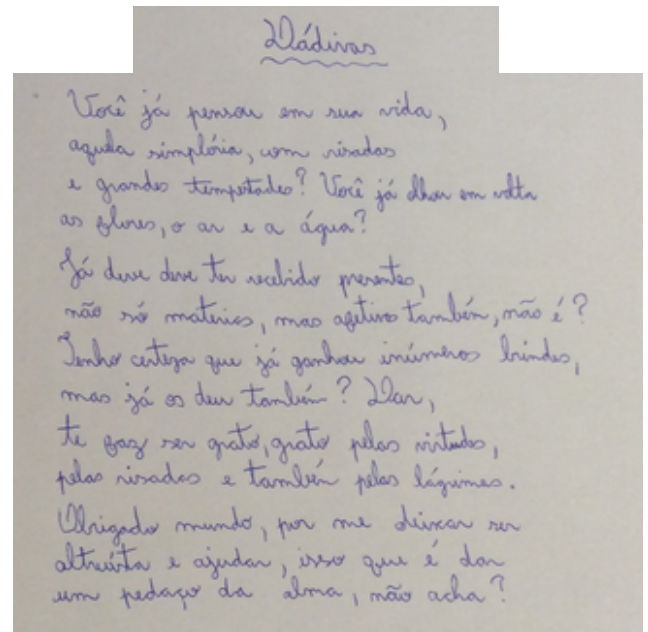 Dádivas
Você já pensou em sua vida,
aquela simplória, com risadas
e grandes tempestades? Você já olhou em volta
as flores, o ar e a água?
Já deve deve ter recebido presentes,
não só materiais, mas afetivos também, não é?
Tenho certeza que já ganhou inúmeros brindes,
mas já os deu também? Dar,
te faz ser grato, grato pelas virtudes,
pelas risadas e também pelas lágrimas.
Obrigado mundo, por me deixar ser
altruísta e ajudar, isso que é dar
um pedaço da alma, não acha?